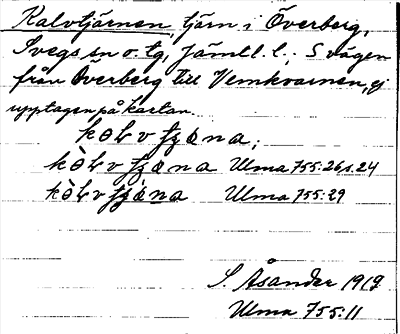 Kalvtjärnen, tjärn i Överberg,
Svegs sn o. tg, Jämtl. l.; S vägen
från Överberg till Vemkvarnen, ej
upptagen på kartan.
Ulma 755:26, s. 24
Ulma 755:29
S. Åsander 1919
Ulma 755:11